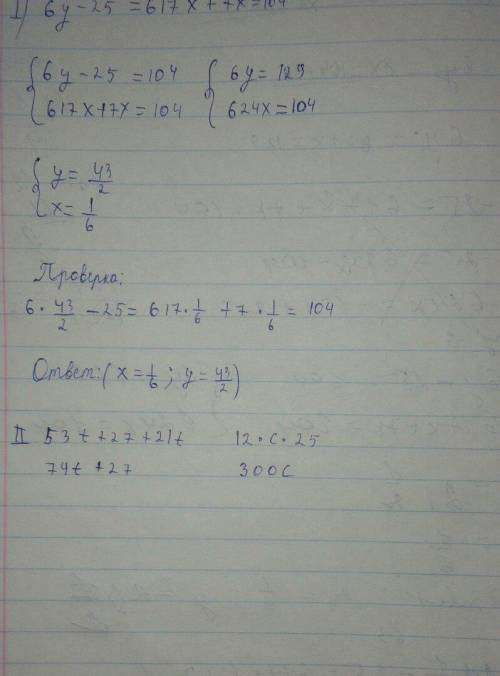 I) 6y - 25 = 617x + 7x = 104
{ 6y - 25 = 104 { 6y = 129
{ 617x + 7x = 104 { 624x = 104
{ y = 43/2
{ x = 1/6
Проверка:
6 · 43/2 - 25 = 617 · 1/6 + 7 · 1/6 = 104
Ответ: (x = 1/6 ; y = 43/2)
II 53t + 27 + 21t 12 · c · 25
74t + 27 300c